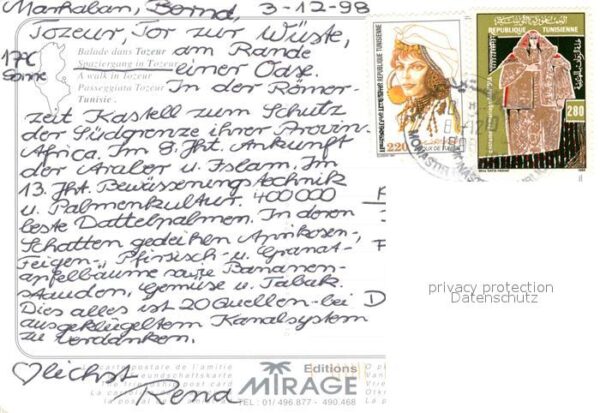 Markaban, Bernd, 3-12-98
Tozeur, Tor zur Wüste,
17°C
Sonne
Balade dans Tozeur
Spaziergang in Tozeur
A walk in Tozeur
Passeggiata Tozeur
Tunisie
am Rande
einer Oase.
In der Römer-
zeit Kastell zum Schutz
der Südgrenze ihrer Provinz
Africa. Im 8. Jht. Ankunft
der Araber u. Islam. Im
13. Jht. Bewässerungstechnik
u. Palmenkultur. 400000
beste Dattelpalmen. In deren
Schatten gedeihen Aprikosen-,
Feigen-, Pfirsich- u. Granat-
apfelbäume sowie Bananen-
stauden, Gemüse u. Tabak.
Dies alles ist 20 Quellen bei
ausgeklügeltem Kanalsystem
zu verdanken.
♡lichst
Rena
REPUBLIQUE TUNISIENNE
220
REPUBLIQUE TUNISIENNE
280
MONASTIR
privacy protection
Datenschutz
carte postale de l'amitie
Editions
MIRAGE
TEL: 01/ 496.877 - 490.468